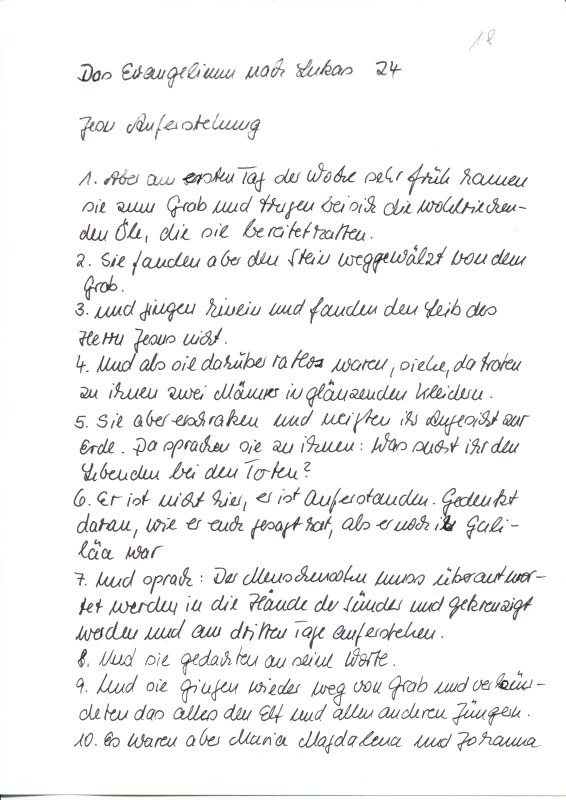 18
Das Evangelium nach Lukas 24
Jesu Auferstehung
1. Aber am ersten Tag der Woche sehr früh kamen
sie zum Grab und trugen bei sich die wohlriechen-
den Öle, die sie bereitet hatten.
2. Sie fanden aber den Stein weggewälzt von dem
Grab.
3. und gingen hinein und fanden den Leib des
Herrn Jesus nicht.
4. Und als sie darüber ratlos waren, siehe, da traten
zu ihnen zwei Männer in glänzenden Kleidern.
5. Sie aber erschraken und neigten ihr Angesicht zur
Erde. Da sprachen sie zu ihnen: Was sucht ihr den
Lebenden bei den Toten?
6. Er ist nicht hier, er ist Auferstanden. Gedenkt
daran, wie er euch gesagt hat, als er noch in Gali-
läa war
7. Und sprach: Der Menschensohn muss überantwor-
tet werden in die Hände der Sünder und gekreuzigt
werden und am dritten Tage auferstehen.
8. Und sie gedachten an seine Worte.
9. Und sie gingen wieder weg von Grab und verkün-
deten das alles den Elf und allen anderen Jüngern.
10. Es waren aber Maria Magdalena und Johanna